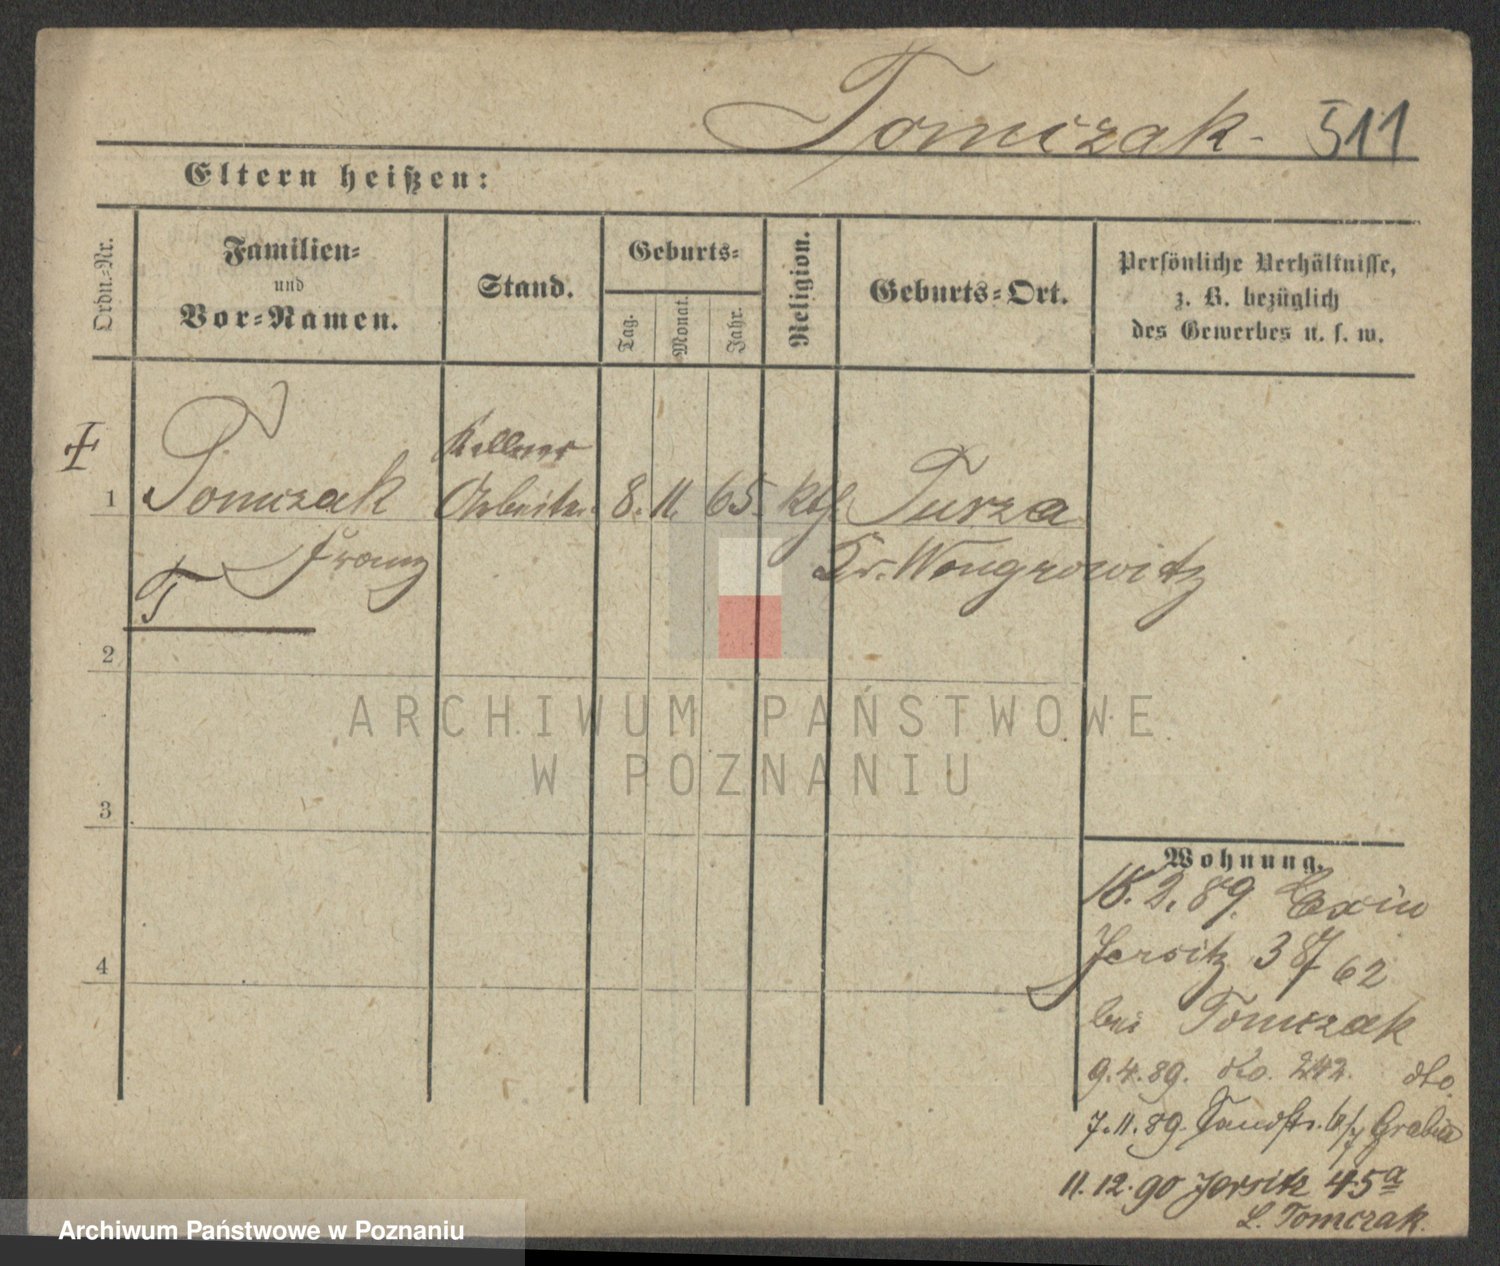 Tomczak - 511
Eltern heißen:
Ordn.-Nr.
Familien-
und
Vor-Namen.
Stand.
Geburts-
Tag.
Monat.
Jahr.
Religion.
Geburts-Ort.
Persönliche Verhältnisse,
z. B. bezüglich
des Gewerbes u. s. w.
Kellner
1 Tomczak Arbeiter 8. 11. 65. kth. Turza
Franz Kr. Wongrowitz
T
2
3
4
Wohnung.
15.2.89. Exin
Jersitz 38/62
bei Tomczak
9.4.89. do. 242. dto
7.11.89. Sandstr. Grabia
11.12.90 Jersitz 45a
L. Tomczak.
ARCHIWUM PAŃSTWOWE
W POZNANIU
Archiwum Państwowe w Poznaniu